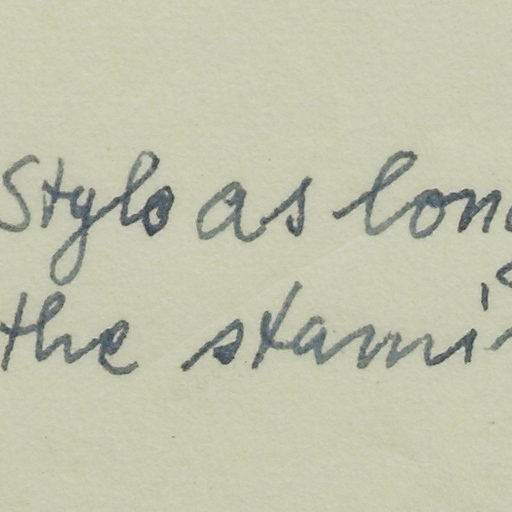 Style as long
the stami